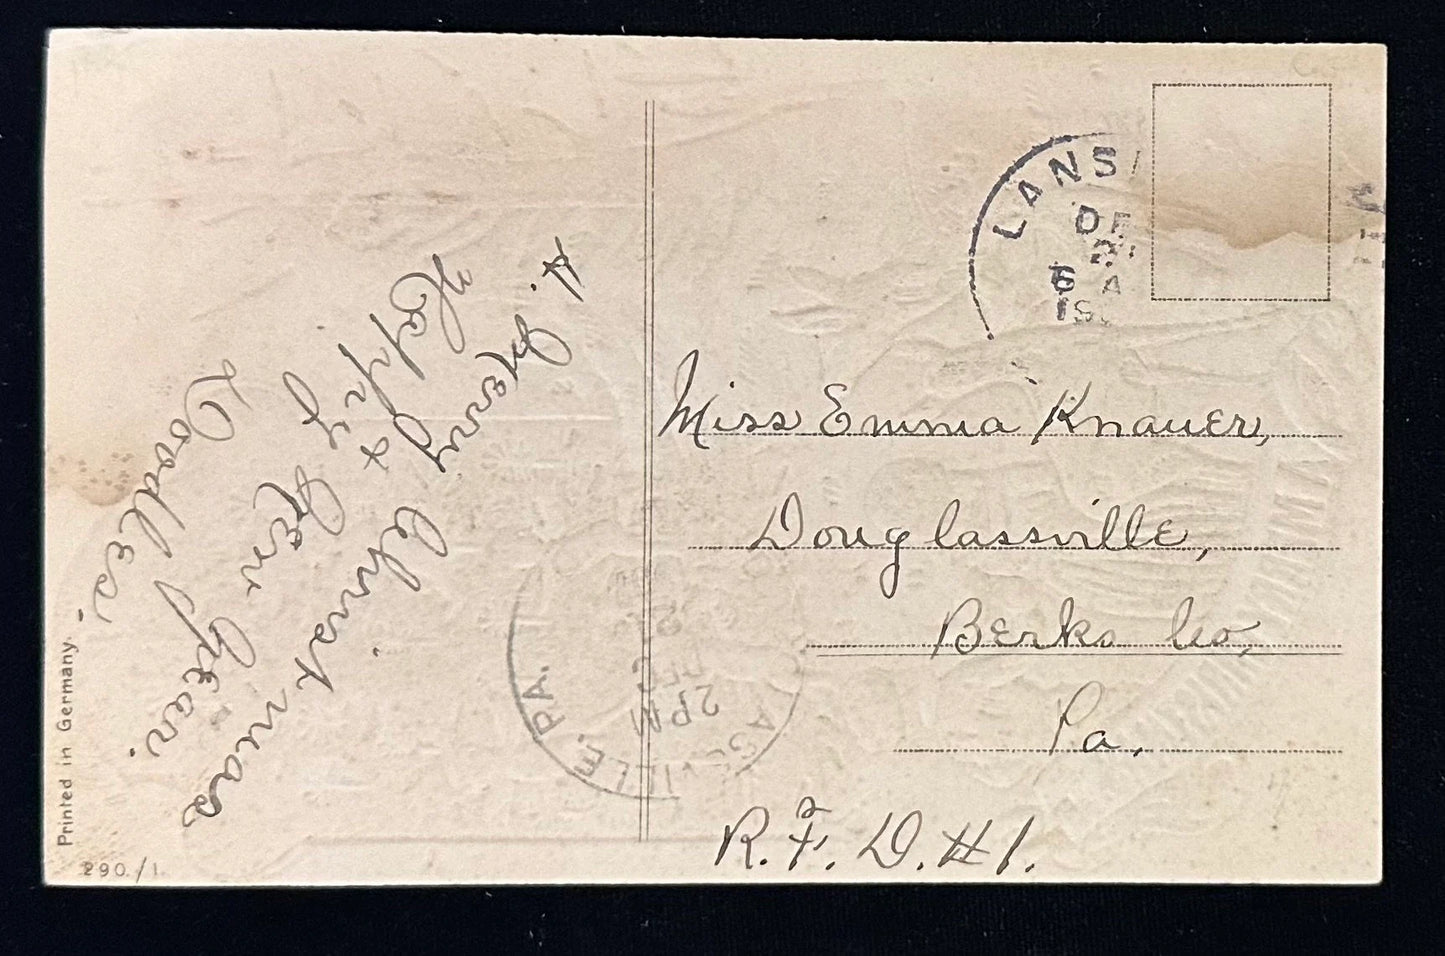 A. Merry Christmas
& Happy New Year.
Doodles.
LANS
DE
2
6 A
19
Miss Emma Knauer,
Douglassville,
Berks Co,
Pa,
R.F.D.#1.
PA.
2 PM
DEC
Printed in Germany.
290./1.